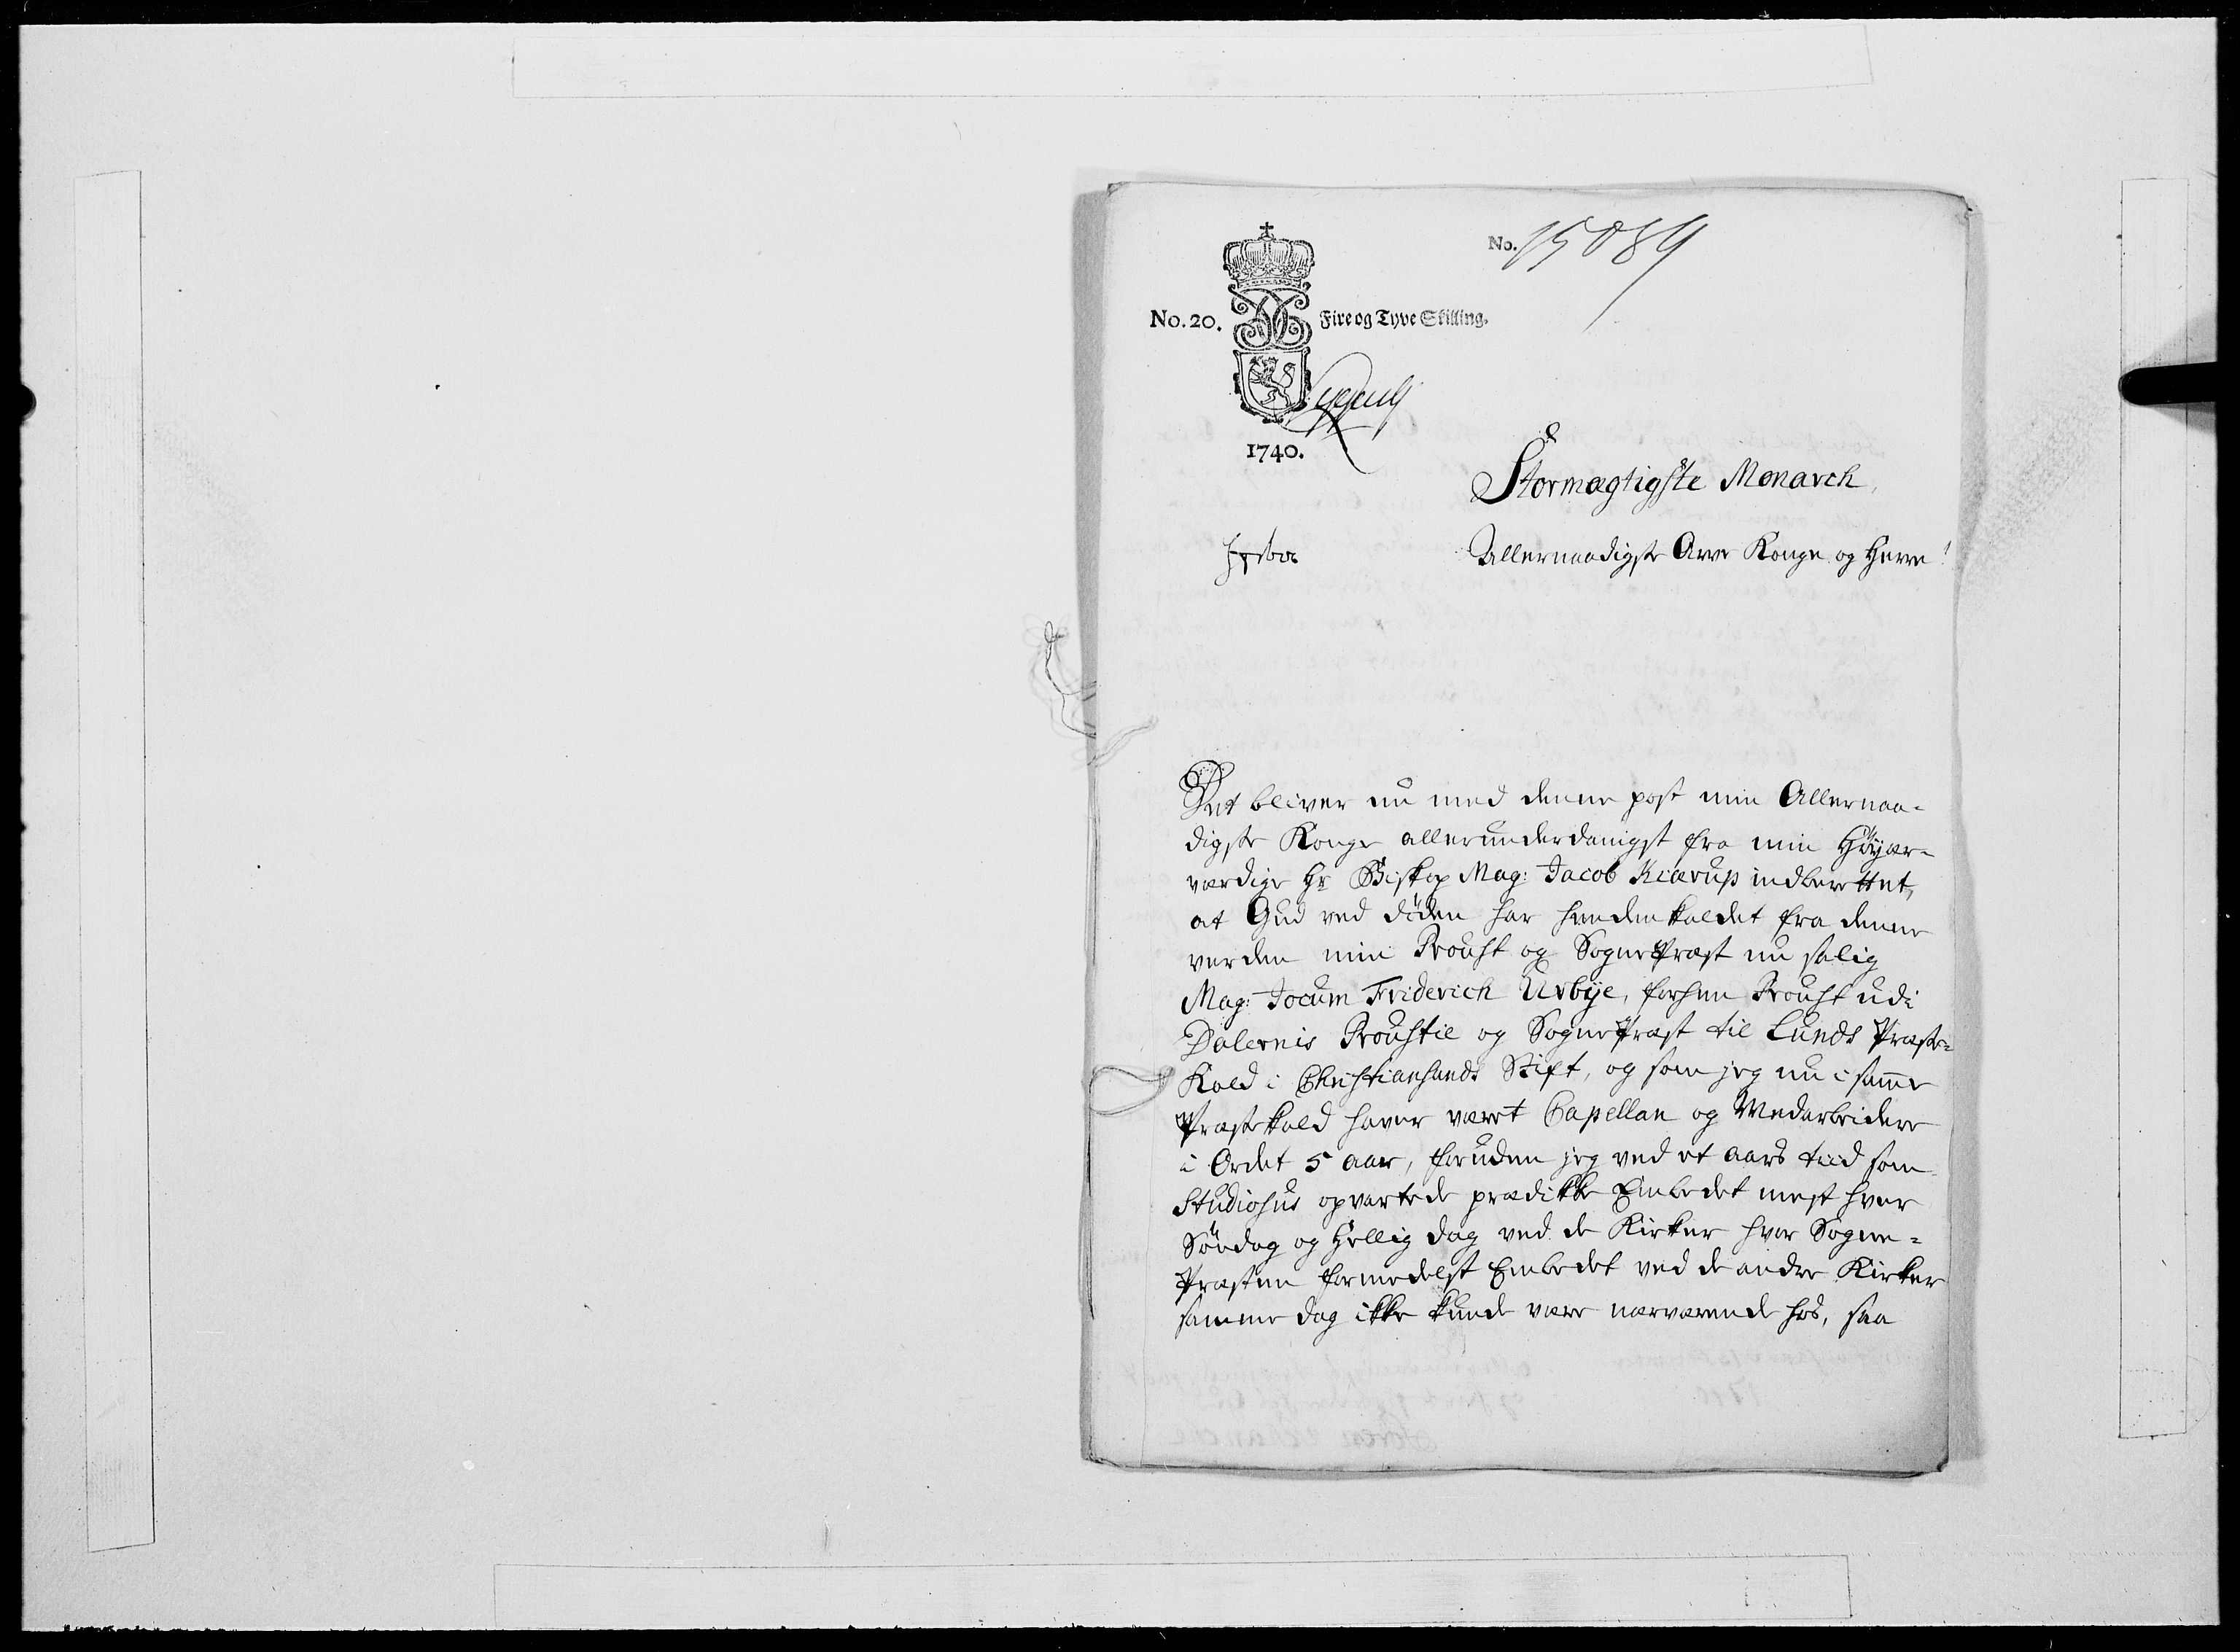 No. 15089
No. 20. Fire og Tyve Skilling.
1740.
Stormægtigste Monarch,
Allernaadigste Arve Konge og Herre!
Det bliver nu med denne post min Allernaa-
digste Konge allerunderdanigst fra min Høyær-
værdige Hr Biskop Mag: Jacob Kiærup indberettet,
at Gud ved døden har hendenkaldet fra denne
verden min Proust og SognePræst nu salig
Mag: Jocum Friderich Urbye, forhen Proust udi
Dalernis Proustie og SognePræst til Lunds Præste=
Kald i Christiansands Stift, og som jeg nu i samme
Præstekald haver været Capellan og Medarbeidere
i Ordet 5 aar, foruden jeg ved et aars tiid som
Studiosus opvartede prædikke Embedet mest hver
Søndag og Hellig dag ved de Kirker hvor Sogne=
Præsten formedelst Embedet ved de andre Kirker
samme dag ikke kunde være nærværende hos, saa